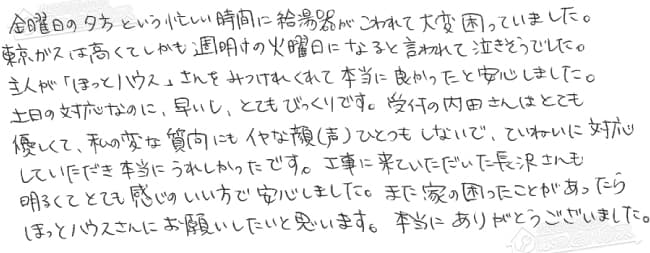 金曜日の夕方という忙しい時間に給湯器がこわれて大変困っていました。
東京ガスは高くてしかも週明けの火曜日になると言われて泣きそうでした。
主人が「ほっとハウス」さんをみつけれくれて本当に良かったと安心しました。
土日の対応なのに、早いし、とてもびっくりです。受付の内田さんはとても
優しくて、私の変な質問にもイヤな顔(声)ひとつもしないで、ていねいに対応
していただき本当にうれしかったです。工事に来ていただいた長沢さんも
明るくてとても感じのいい方で安心しました。また家の困ったことがあったら
ほっとハウスさんにお願いしたいと思います。本当にありがとうございました。